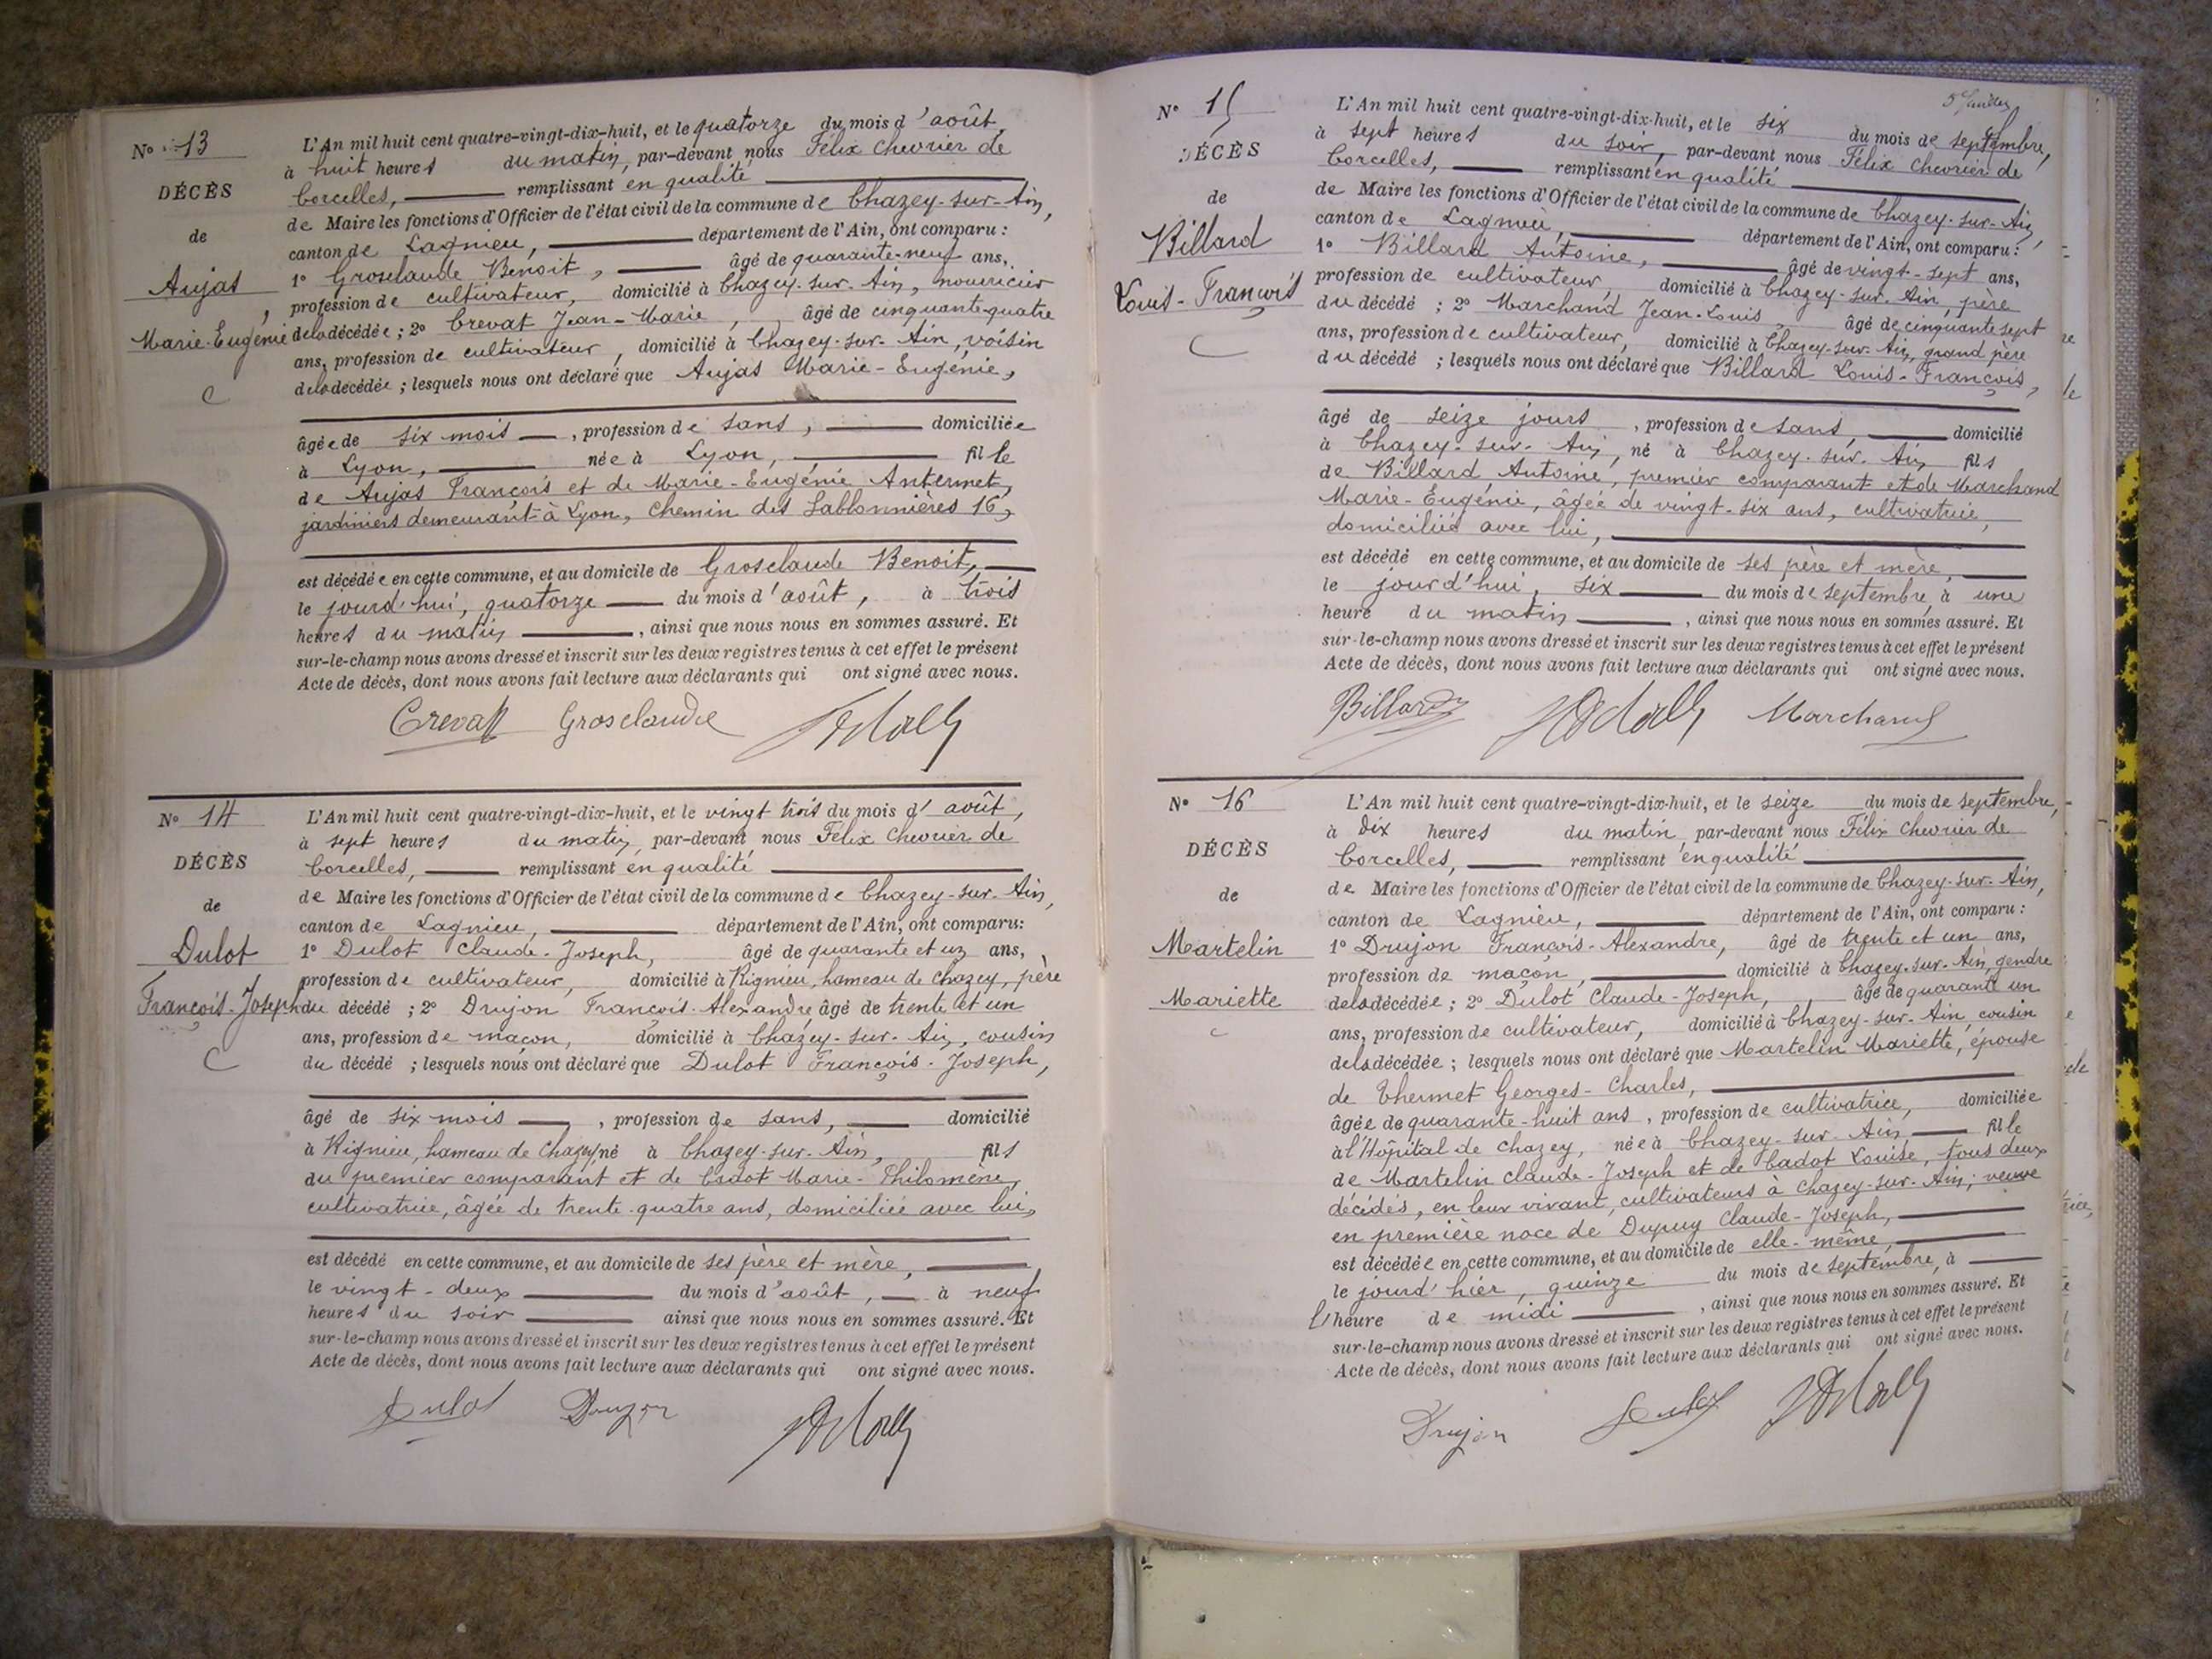 N° 13
DÉCÈS
de
Aujas
Marie-Eugénie
L'An mil huit cent quatre-vingt-dix-huit, et le quatorze du mois d'août,
à huit heures du matin, par-devant nous Félix Chevrier de
Corcelles, remplissant en qualité
de Maire les fonctions d'Officier de l'état civil de la commune de Chazey-sur-Ain,
canton de Lagnieu, département de l'Ain, ont comparu :
1° Grosclaude Benoit, âgé de quarante-neuf ans,
profession de cultivateur, domicilié à Chazey-sur-Ain, nourricier
de la décédée ; 2° Crevat Jean-Marie, âgé de cinquante-quatre
ans, profession de cultivateur, domicilié à Chazey-sur-Ain, voisin
de la décédée ; lesquels nous ont déclaré que Aujas Marie-Eugénie,
âgée de six mois, profession de sans, domiciliée
à Lyon, née à Lyon, fille
de Aujas François et de Marie-Eugénie Antermet,
jardiniers demeurant à Lyon, chemin des Sablonnières 16,
est décédée en cette commune, et au domicile de Grosclaude Benoit,
le jourd'hui, quatorze du mois d'août, à trois
heures du matin, ainsi que nous nous en sommes assuré. Et
sur-le-champ nous avons dressé et inscrit sur les deux registres tenus à cet effet le présent
Acte de décès, dont nous avons fait lecture aux déclarants qui ont signé avec nous.
Crevat Grosclaude
N° 14
DÉCÈS
de
Dulot
François-Joseph
L'An mil huit cent quatre-vingt-dix-huit, et le vingt trois du mois d'août,
à sept heures du matin, par-devant nous Félix Chevrier de
Corcelles, remplissant en qualité
de Maire les fonctions d'Officier de l'état civil de la commune de Chazey-sur-Ain,
canton de Lagnieu, département de l'Ain, ont comparu :
1° Dulot Claude-Joseph, âgé de quarante et un ans,
profession de cultivateur, domicilié à Rignieu, hameau de Chazey, père
du décédé ; 2° Drujon François-Alexandre âgé de trente et un
ans, profession de maçon, domicilié à Chazey-sur-Ain, cousin
du décédé ; lesquels nous ont déclaré que Dulot François-Joseph,
âgé de six mois, profession de sans, domicilié
à Rignieu, hameau de Chazey, né à Chazey-sur-Ain, fils
du premier comparant et de Cadot Marie-Philomène,
cultivatrice, âgée de trente-quatre ans, domiciliée avec lui,
est décédé en cette commune, et au domicile de ses père et mère,
le vingt-deux du mois d'août, à neuf
heures du soir ainsi que nous nous en sommes assuré. Et
sur-le-champ nous avons dressé et inscrit sur les deux registres tenus à cet effet le présent
Acte de décès, dont nous avons fait lecture aux déclarants qui ont signé avec nous.
Dulot Drujon
N° 15
DÉCÈS
de
Billard
Louis-François
L'An mil huit cent quatre-vingt-dix-huit, et le six du mois de septembre,
à sept heures du soir, par-devant nous Félix Chevrier de
Corcelles, remplissant en qualité
de Maire les fonctions d'Officier de l'état civil de la commune de Chazey-sur-Ain,
canton de Lagnieu, département de l'Ain, ont comparu :
1° Billard Antoine, âgé de vingt-sept ans,
profession de cultivateur, domicilié à Chazey-sur-Ain, père
du décédé ; 2° Marchand Jean-Louis, âgé de cinquante sept
ans, profession de cultivateur, domicilié à Chazey-sur-Ain, grand père
du décédé ; lesquels nous ont déclaré que Billard Louis-François,
âgé de seize jours, profession de sans, domicilié
à Chazey-sur-Ain, né à Chazey-sur-Ain fils
de Billard Antoine, premier comparant et de Marchand
Marie-Eugénie, âgée de vingt-six ans, cultivatrice,
domiciliée avec lui,
est décédé en cette commune, et au domicile de ses père et mère,
le jourd'hui, six du mois de septembre, à une
heure du matin, ainsi que nous nous en sommes assuré. Et
sur-le-champ nous avons dressé et inscrit sur les deux registres tenus à cet effet le présent
Acte de décès, dont nous avons fait lecture aux déclarants qui ont signé avec nous.
Billard Marchand
N° 16
DÉCÈS
de
Martelin
Mariette
L'An mil huit cent quatre-vingt-dix-huit, et le seize du mois de septembre,
à dix heures du matin, par-devant nous Félix Chevrier de
Corcelles, remplissant en qualité
de Maire les fonctions d'Officier de l'état civil de la commune de Chazey-sur-Ain,
canton de Lagnieu, département de l'Ain, ont comparu :
1° Drujon François-Alexandre, âgé de trente et un ans,
profession de maçon, domicilié à Chazey-sur-Ain, gendre
de la décédée ; 2° Dulot Claude-Joseph, âgé de quarante un
ans, profession de cultivateur, domicilié à Chazey-sur-Ain, cousin
de la décédée ; lesquels nous ont déclaré que Martelin Mariette, épouse
de Thermet Georges-Charles,
âgée de quarante-huit ans, profession de cultivatrice, domiciliée
à l'Hôpital de Chazey, née à Chazey-sur-Ain, fille
de Martelin Claude-Joseph et de Cadot Louise, tous deux
décédés, en leur vivant, cultivateurs à Chazey-sur-Ain ; veuve
en première noce de Dupuy Claude-Joseph,
est décédée en cette commune, et au domicile de elle-même,
le jourd'hier, quinze du mois de septembre, à
l'heure de midi, ainsi que nous nous en sommes assuré. Et
sur-le-champ nous avons dressé et inscrit sur les deux registres tenus à cet effet le présent
Acte de décès, dont nous avons fait lecture aux déclarants qui ont signé avec nous.
Drujon Dulot